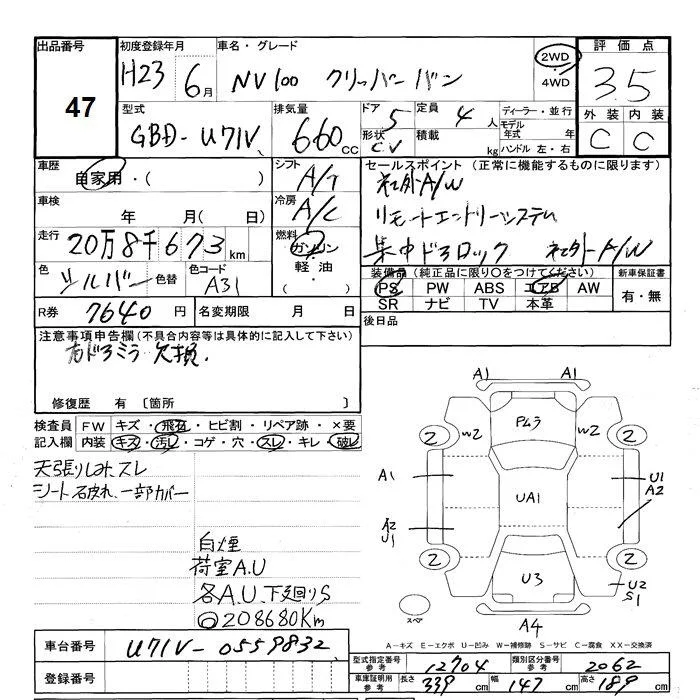 出品番号 初度登録年月 車名・グレード 評価点
47 H23 6月 NV100 クリッパーバン 2WD・4WD 3.5
型式 排気量 ドア 5 定員 4人 ディーラー・並行 外装 内装
GBD-U71V 660cc 形状 CV 積載 kg モデル年式 年 C C
ハンドル 左・右
車歴 自家用・( ) シフト A/T セールスポイント (正常に機能するものに限ります)
車検 年 月(日) 冷房 A/C 社外A/W
リモートエントリーシステム
走行 20万8千673km 燃料 ガソリン 軽油・( ) 集中ドアロック 社外A/W
色 シルバー 色替 色コード A31 装備品(純正品に限り○をつけてください) 新車保証書
PS PW ABS エアB AW 有・無
SR ナビ TV 本革
R券 7640円 名変期限 月 日 後日品
注意事項申告欄(不具合内容等は具体的に記入して下さい)
右ドアミラー欠損.
修復歴 有〔箇所 〕
検査員 FW キズ・飛石・ヒビ割・リペア跡・×要
記入欄 内装 キズ・汚レ・コゲ・穴・スレ・キレ・破レ
天張りしみ、スレ
シート破れ、一部カバー
白煙
荷室A.U
各A.U、下廻りS
208680Km
A1 A1
2 W2 Pムラ W2 2
A1 UA1 U1
A2
A2
U1
2 U3 2
U2
S1
スペア
A4
A-キズ E-エクボ U-凹み W-補修跡 S-サビ C-腐食 XX-交換済
車台番号 U71V-0559832
登録番号
型式指定番号 参考 12704 類別区分番号 参考 2062
車体証明用 参考 長さ 339cm 幅 147cm 高さ 189cm